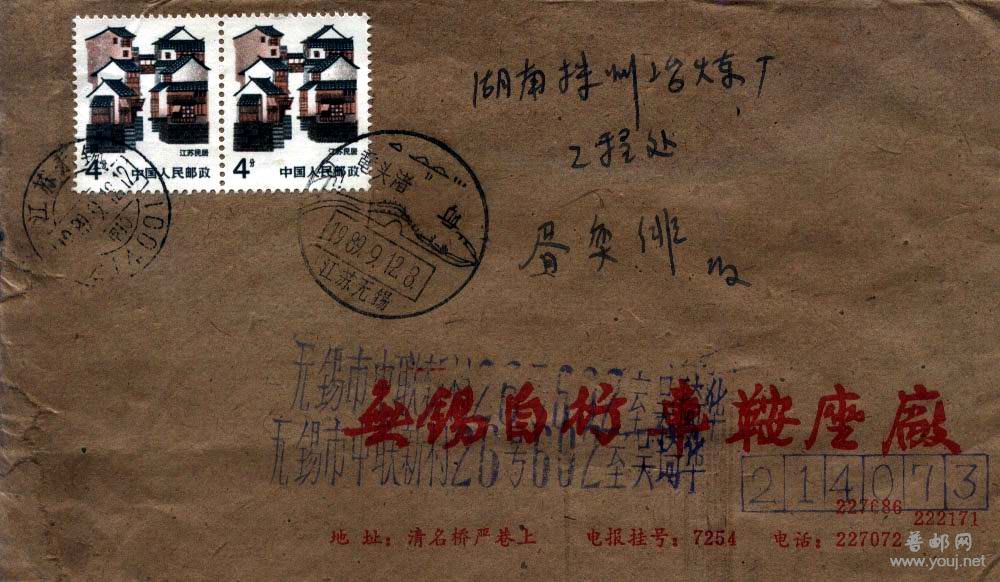 江苏民居
4分 中国人民邮政
江苏民居
4分 中国人民邮政
江苏无锡
鼋头渚
1989.9.12.8
江苏无锡
湖南株州冶炼厂
工程处
收
无锡市中联新村26号602室吴琦华
无锡市中联新村26号602室吴琦华
无锡自行車鞍座廠
214073
227686
222171
地 址：清名桥严巷上 电报挂号：7254 电话：227072
普邮网
www.youj.net